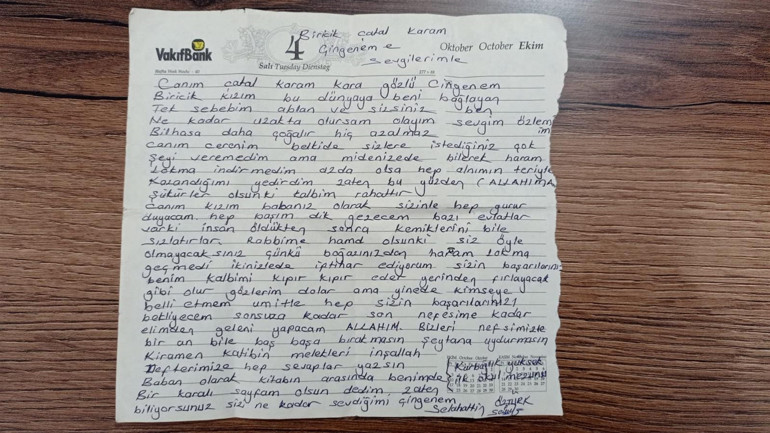 Biricik çatal karam
Çingeneme
sevgilerimle
VakıfBank
4
Oktober October Ekim
Salı Tuesday Dienstag
Canım çatal karam kara gözlü Çingenem
Biricik kızım bu dünyaya beni bağlayan
Tek sebebim ablan ve sizsiniz ben
Ne kadar uzakta olursam olayım sevgim özlem
im
Bilhasa daha çoğalır hiç azalmaz
canım cerenim belkide sizlere istediğiniz çok
şeyi veremedim ama midenizede bilerek haram
Lokma indirmedim azda olsa hep alnımın teriyle
Kazandığımı yedirdim zaten bu yüzden (ALLAHIMA
şükürler olsunki kalbim rahattır
canım kızım babanız olarak sizinle hep gurur
duyacam. hep başım dik gezecem bazı evlatlar
varki insan öldükten sonra kemiklerini bile
sızlatırlar. Rabbime hamd olsunki siz öyle
olmayacaksınız çünkü boğazınızdan haram lokma
geçmedi ikinizlede iptihar ediyorum sizin başarılarınız
benim kalbimi kıpır kıpır eder yerinden fırlayacak
gibi olur gözlerim dolar ama yinede kimseye
belli etmem umitle hep sizin başarılarınızı
bekliyecem sonsuza kadar son nefesime kadar
elimden geleni yapacam ALLAHIM. Bizleri nefsimizle
bir an bile baş başa bırakmasın Şeytana uydurmasın
Kiramen katibin melekleri inşallah
Defterimize hep sevaplar yazsın
Baban olarak kitabın arasında benimde
Bir karalı sayfam olsun dedim. zaten
biliyorsunuz sizi ne kadar sevdiğimi çingenem
Kurbağlık yüksek
ilk okul mezunu
Selahattin